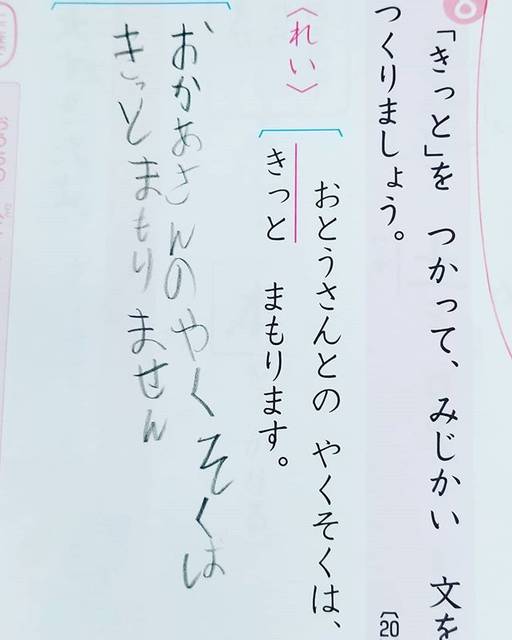 「きっと」を つかって、みじかい 文を
つくりましょう。
(20
〈れい〉
おとうさんとの やくそくは、
きっと まもります。
おかあさんのやくそくは
きっとまもりません